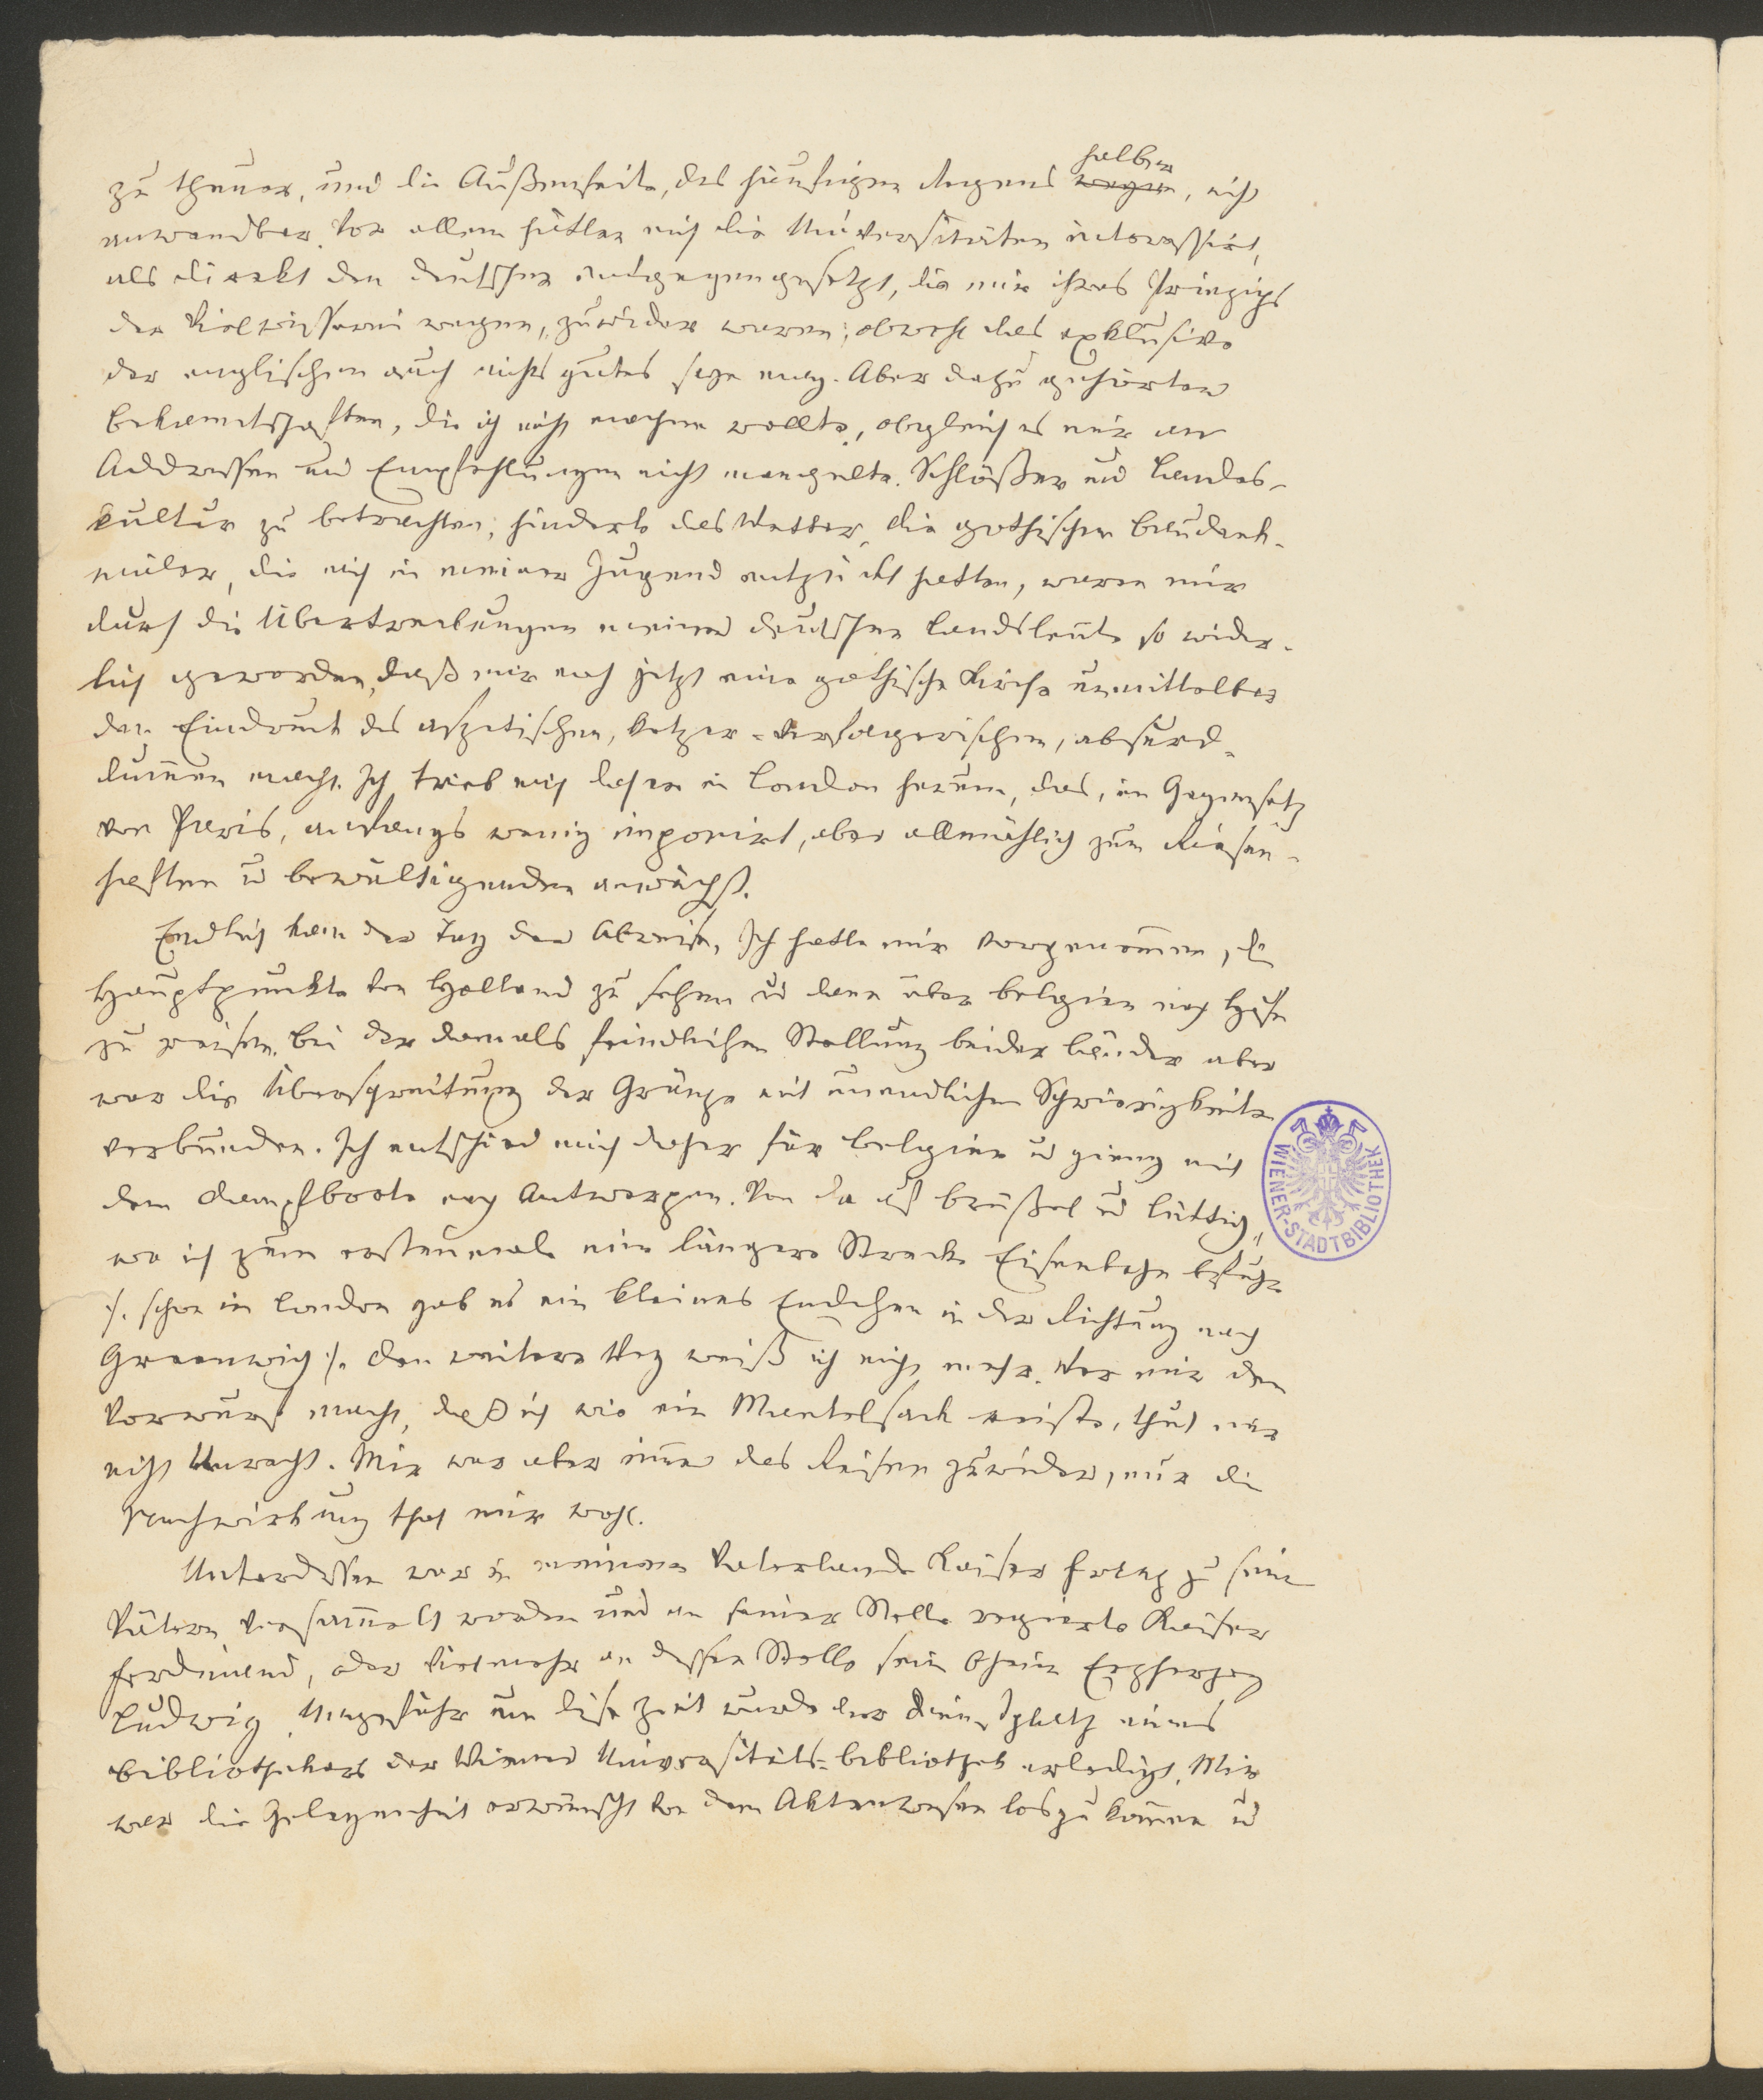 zu theuer, und die Außenseite, des häufigen Regens wegen halber, nicht
anwendbar. Vor allem hätten mich die Universitäten interessirt,
als direkt den deutschen entgegengesetzt, die mir ihres Prinzips
der Vielwisserei wegen, zuwider waren; obwohl das exklusive
der englischen auch nichts gutes sein mag. Aber dazu gehörten
Bekanntschaften, die ich nicht machen wollte, obgleich es mir an
Addressen und Empfehlungen nicht mangelte. Schlößer und Landes-
kultur zu betrachten, hinderte das Wetter, die gothischen Baudenk-
mäler, die mich in meiner Jugend entzückt hatten, waren mir
durch die Übertreibungen meiner deutschen Landsleute so wider-
lich geworden, daß mir noch jetzt eine gothische Kirche unmittelbar
den Eindruck des aszetischen, ketzer-verfolgerischen, absurd-
dummen macht. Ich trieb mich daher in London herum, das, im Gegensatz
von Paris, anfangs wenig imponirt, aber allmählich zum Riesen-
haften u bewältigenden anwächst.
Endlich kam der Tag der Abreise. Ich hatte mir vorgenommen, die
Hauptpunkte von Holland zu sehen u dann über Belgien nach Hause
zu reisen. Bei der damals feindlichen Stellung beider Länder aber
war die Überschreitung der Gränze mit unendlichen Schwierigkeiten
verbunden. Ich entschied mich daher für Belgien u gieng mit
dem Dampfboote nach Antwerpen. Von da auf Brüßel und Lüttich,
wo ich zum erstenmale eine längere Strecke Eisenbahn befuhr
/: schon in London gab es ein kleines Endchen in der Richtung nach
Greenwich :/. Den weitern Weg weiß ich nicht mehr. Wer mir den
Vorwurf macht, daß ich wie ein Mantelsack reiste, thut mir
nicht Unrecht. Mir war aber immer das Reisen zuwider, nur die
Nachwirkung that mir wohl.
Unterdessen war in meinem Vaterlande Kaiser Franz zu seinen
Vätern versammelt worden und an seiner Stelle regierte Kaiser
Ferdinand, oder vielmehr an dessen Stelle sein Oheim Erzherzog
Ludwig. Ungefähr um diese Zeit wurde der Dienstplatz eines
Bibliothekars der Wiener Universitäts-Bibliothek erledigt. Mir
war die Gelegenheit erwünscht von dem Aktenwesen loszukommen u
WIENER-STADTBIBLIOTHEK